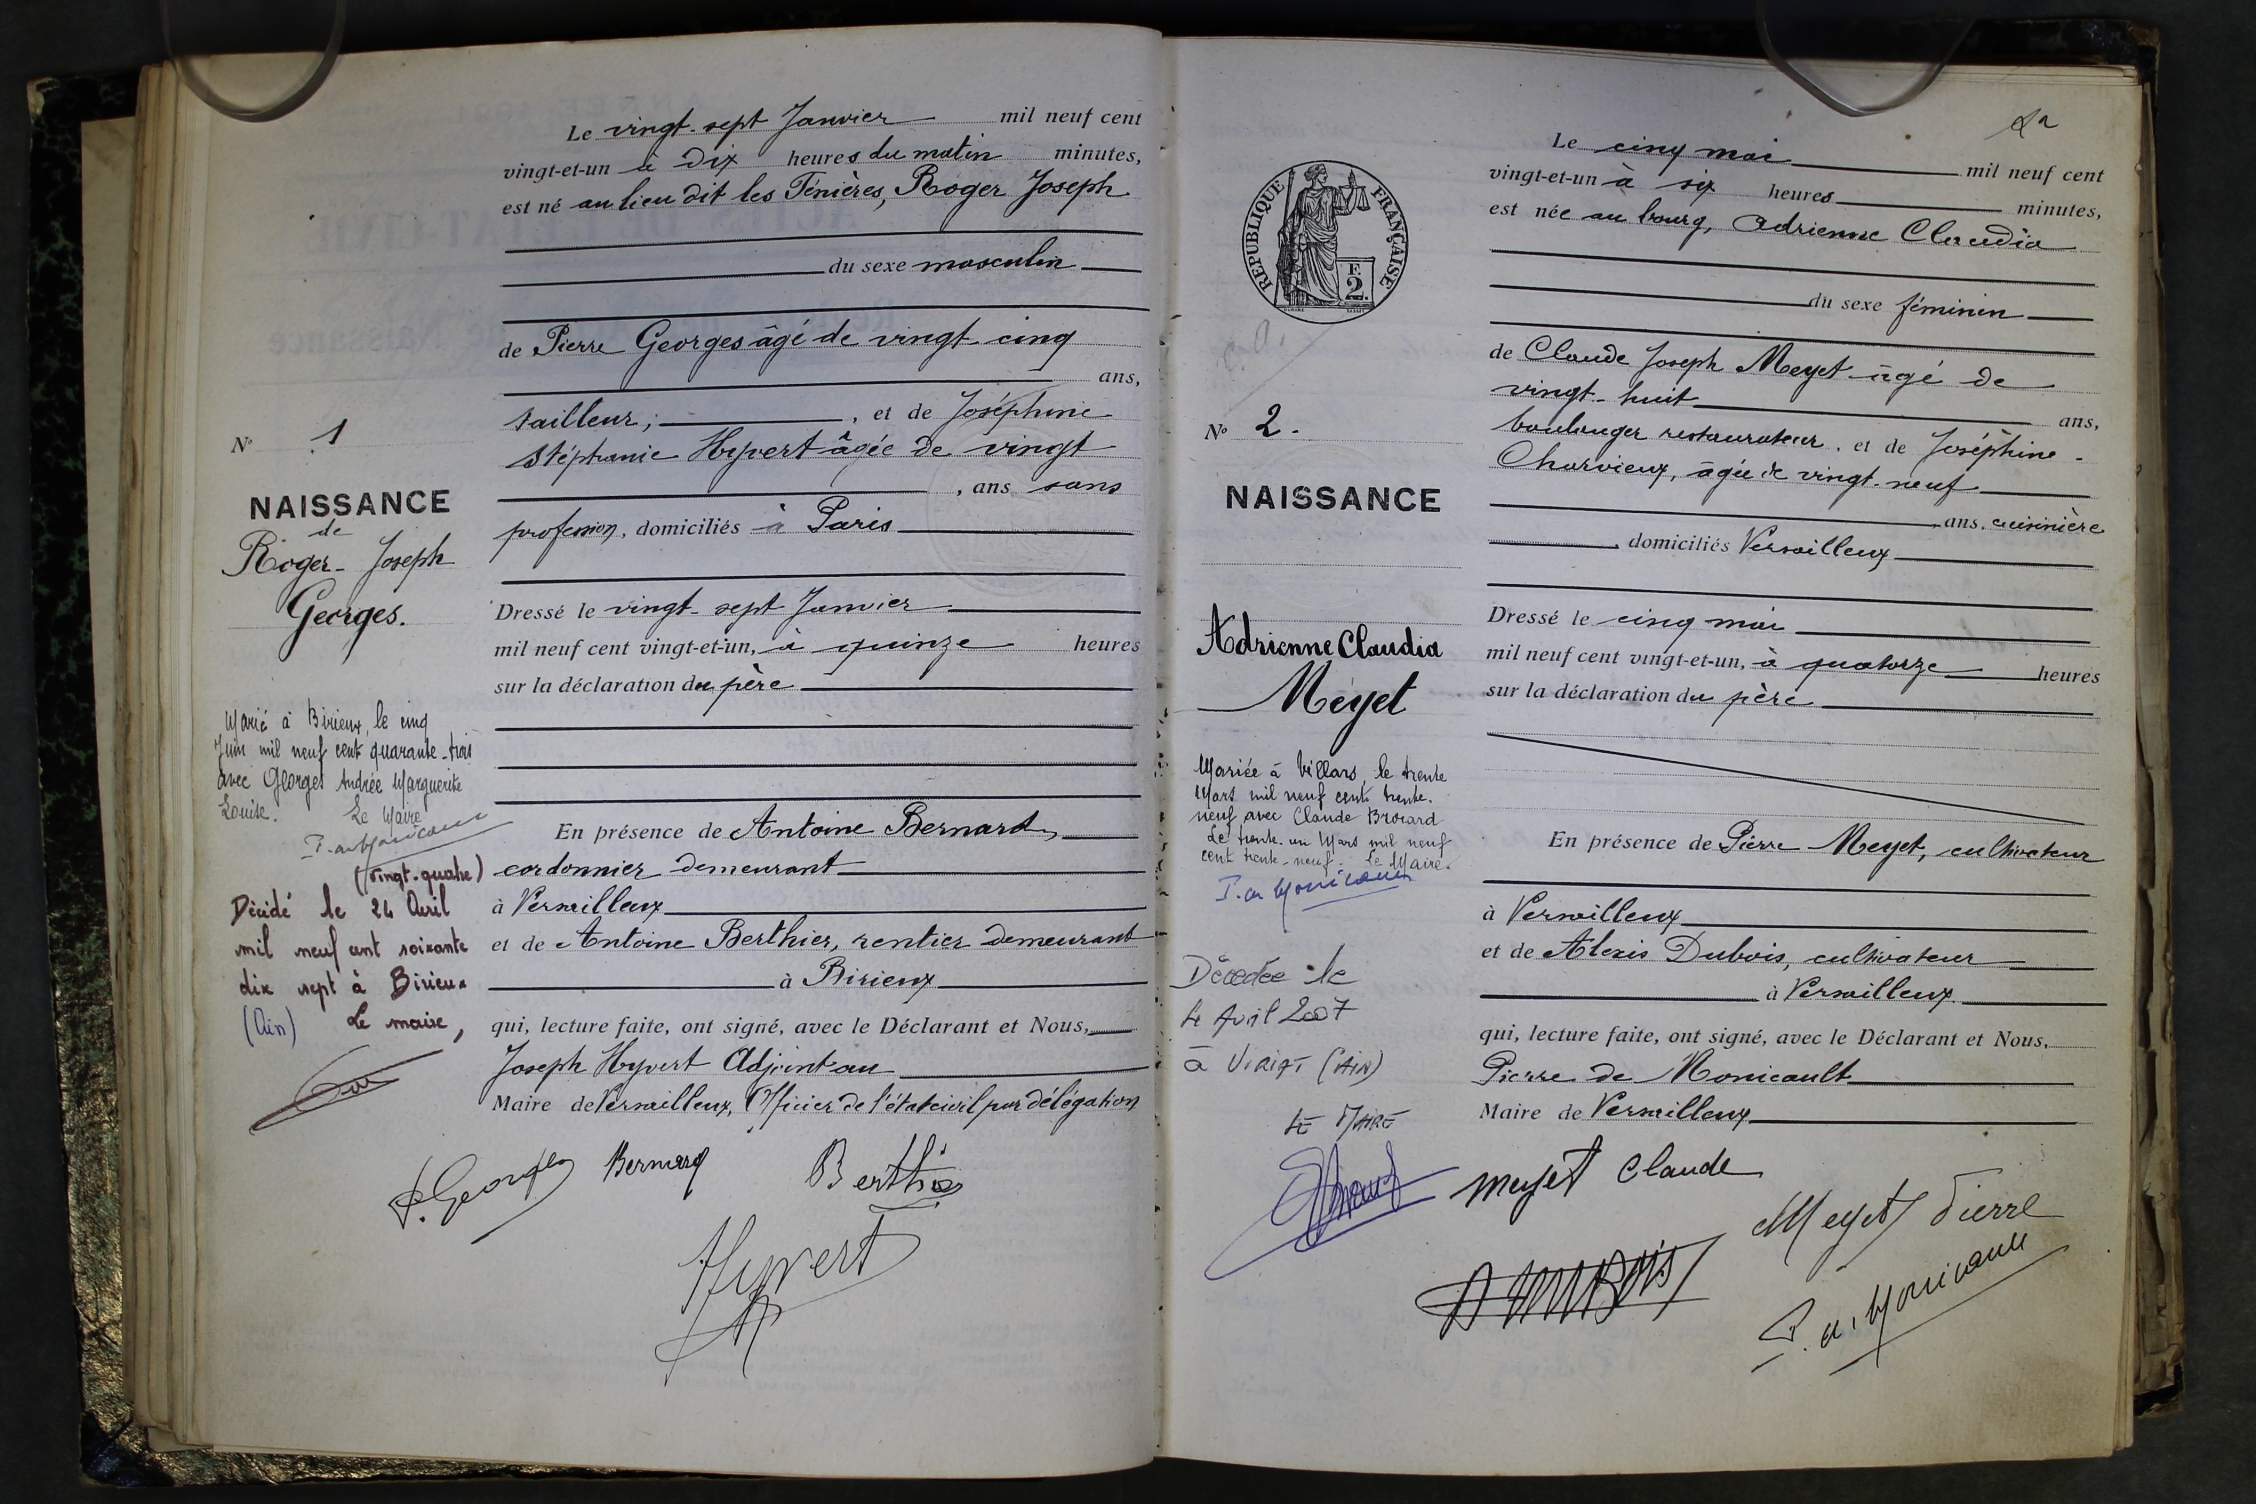 Le vingt-sept Janvier mil neuf cent
vingt-et-un à dix heures du matin minutes,
est né au lieu dit les Ténières, Roger Joseph
du sexe masculin
de Pierre Georges âgé de vingt-cinq
ans,
tailleur; , et de Joséphine
Stéphanie Hyvert âgée de vingt
, ans sans
profession, domiciliés à Paris
Dressé le vingt-sept Janvier
mil neuf cent vingt-et-un, à quinze heures
sur la déclaration du père
En présence de Antoine Bernard,
cordonnier demeurant
à Versailleux
et de Antoine Berthier, rentier demeurant
à Birieux
qui, lecture faite, ont signé, avec le Déclarant et Nous,
Joseph Hyvert Adjoint au
Maire de Versailleux, Officier de l'état civil par délégation
P. Georges Bernard Berthier
Hyvert
N° 1
NAISSANCE
de
Roger-Joseph
Georges.
Marié à Birieux, le cinq
Juin mil neuf cent quarante-trois
avec Georges Andrée Marguerite
Louise. Le Maire
P. de Monicault
(Vingt-quatre)
Décédé le 24 Avril
mil neuf cent soixante
dix sept à Birieux
(Ain) Le maire,
RÉPUBLIQUE FRANÇAISE
F.
2.
N° 2.
NAISSANCE
Adrienne Claudia
Meyet
Mariée à Villars, le trente
Mars mil neuf cent trente-
neuf avec Claude Brocard
Le trente-un Mars mil neuf
cent trente-neuf. Le Maire.
P. de Monicault
Décédée le
4 Avril 2007
à VIRIAT (AIN)
LE MAIRE
Le cinq mai mil neuf cent
vingt-et-un à six heures minutes,
est née au bourg, Adrienne Claudia
du sexe féminin
de Claude Joseph Meyet âgé de
vingt-huit ans,
boulanger restaurateur, et de Joséphine
Charvieux, âgée de vingt-neuf
ans, cuisinière
, domiciliés Versailleux
Dressé le cinq mai
mil neuf cent vingt-et-un, à quatorze heures
sur la déclaration du père
En présence de Pierre Meyet, cultivateur
à Versailleux
et de Alexis Dubois, cultivateur
à Versailleux
qui, lecture faite, ont signé, avec le Déclarant et Nous,
Pierre de Monicault
Maire de Versailleux
Meyet Claude
Meyet Pierre
DUBOIS
P. de Monicault